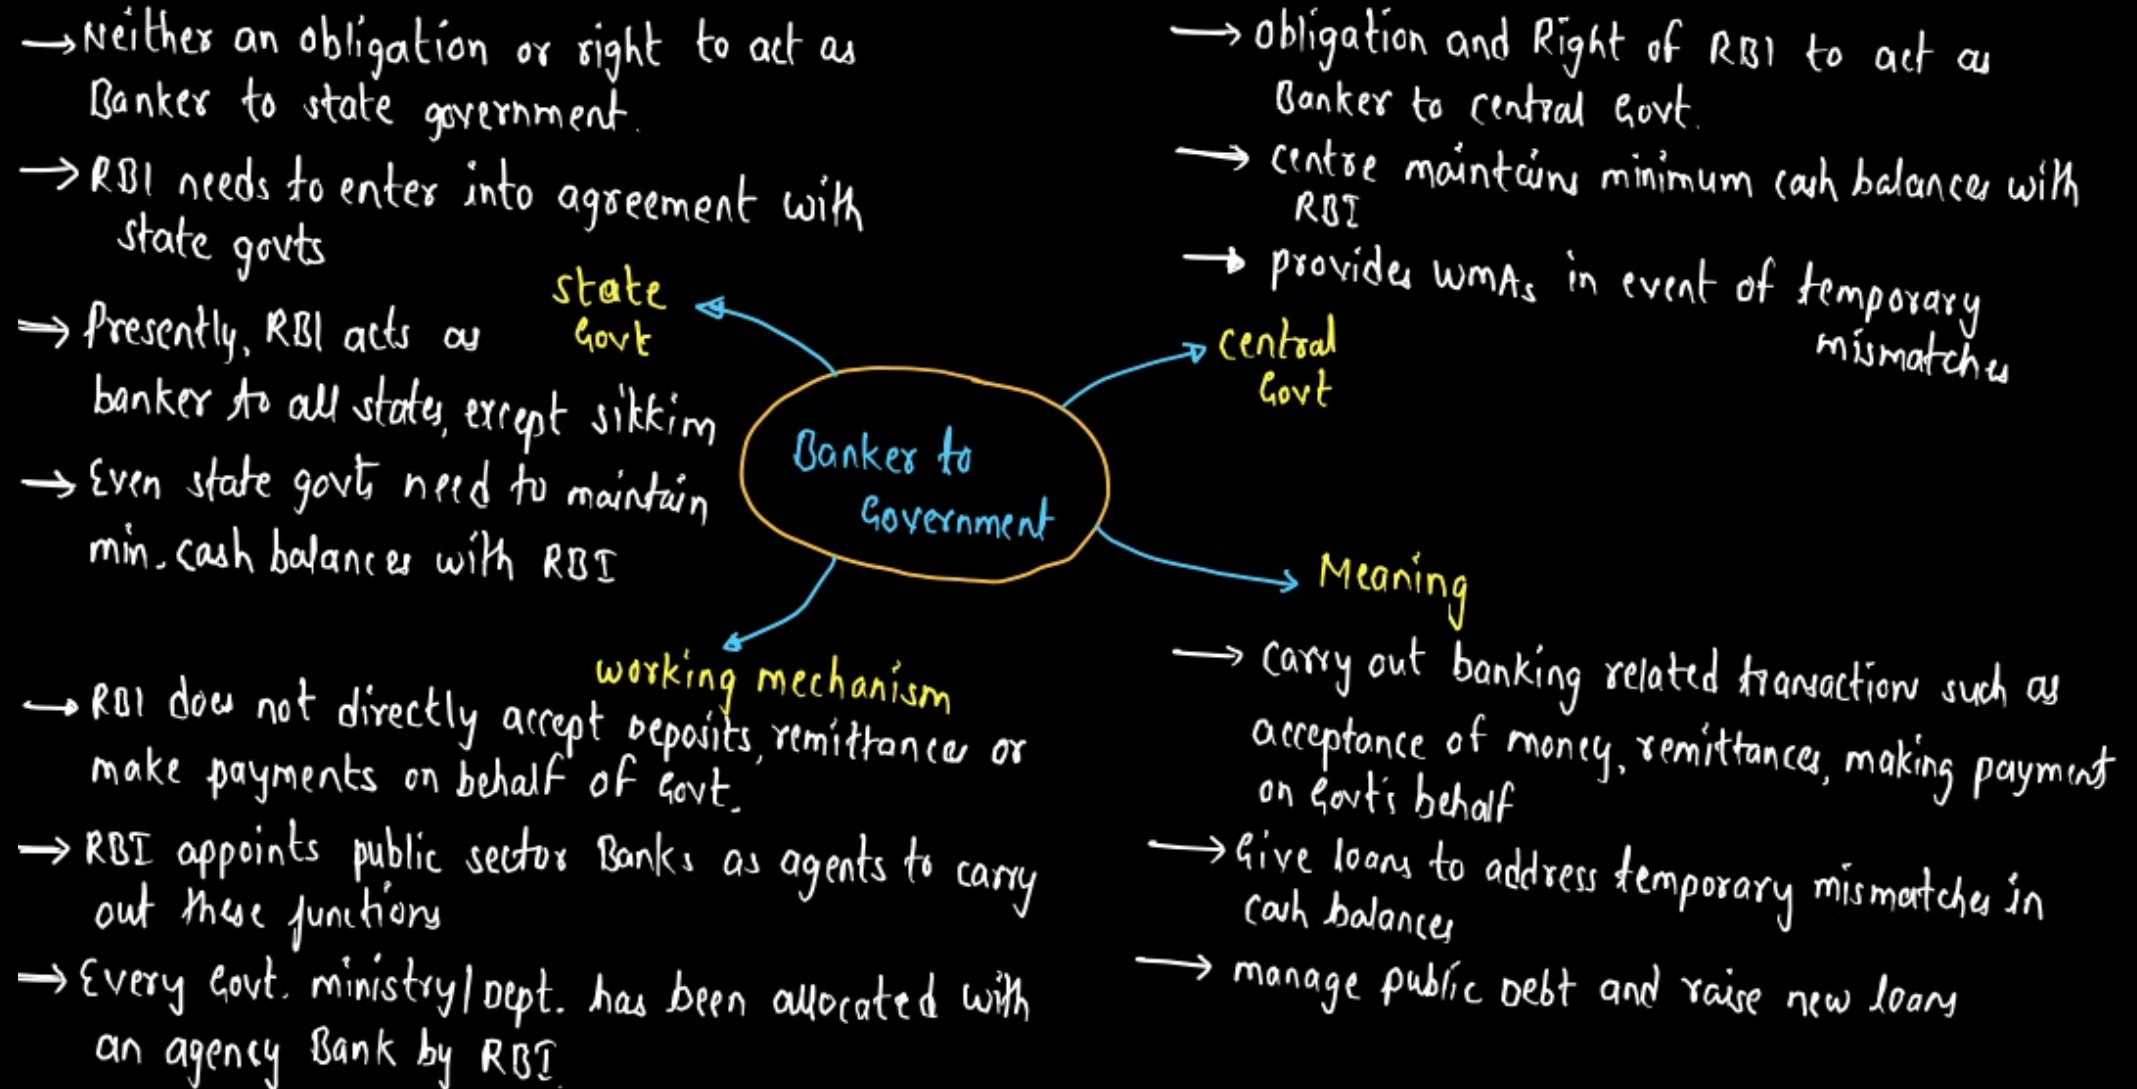 → Neither an obligation or right to act as
Banker to state government.
→ RBI needs to enter into agreement with
state govts
→ Presently, RBI acts as
banker to all states, except sikkim
→ Even state govts need to maintain
min. cash balances with RBI
state
Govt
→ obligation and Right of RBI to act as
Banker to central Govt.
→ centre maintains minimum cash balances with
RBI
→ provides WMAs in event of temporary
mismatches
central
Govt
Banker to
Government
Meaning
→ carry out banking related transaction such as
acceptance of money, remittances, making payment
on Govt's behalf
→ Give loans to address temporary mismatches in
cash balances
→ manage public Debt and raise new loans
working mechanism
→ RBI does not directly accept Deposits, remittances or
make payments on behalf of Govt.
→ RBI appoints public sector Banks as agents to carry
out these functions
→ Every Govt. ministry/Dept. has been allocated with
an agency Bank by RBI